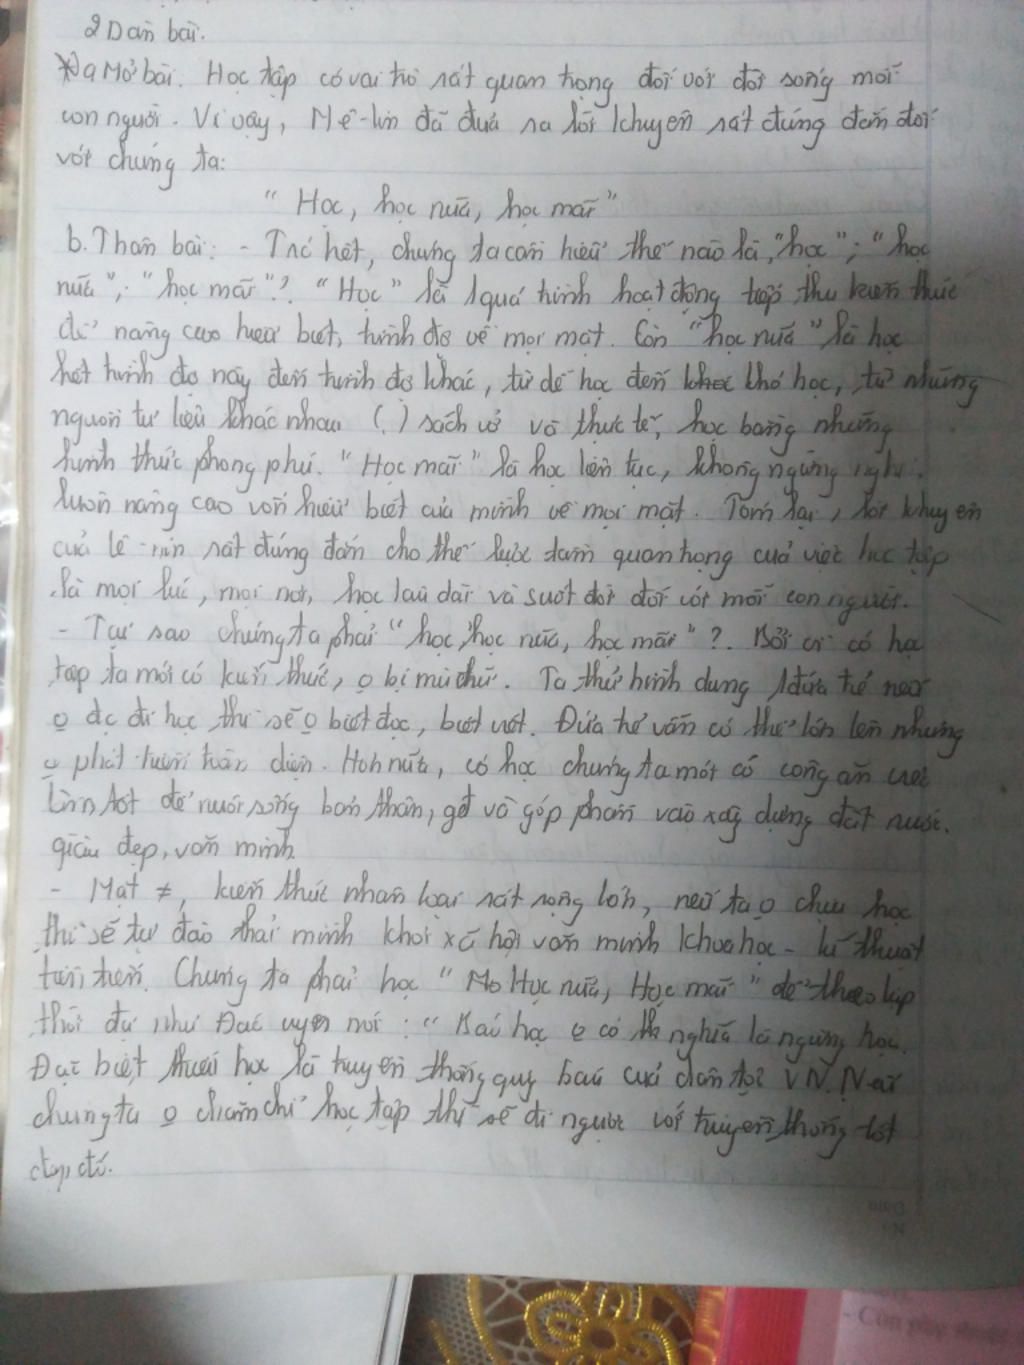 2 Dàn bài.
a Mở bài. Học tập có vai trò rất quan trọng đối với đời sống mỗi
con người. Vì vậy, Mê-lin đã đưa ra lời khuyên rất đúng đắn đối
với chúng ta:
" Học, học nữa, học mãi "
b. Thân bài: - Trc hết, chúng ta cần hiểu thế nào là, "học"; "học
nữa"; "học mãi"? "Học" là 1 quá trình hoạt động tiếp thu kiến thức
để nâng cao hiểu biết, trình độ về mọi mặt. Còn "học nữa" là học
hết trình độ này đến trình độ khác, từ dễ học đến khó học, từ những
nguồn tư liệu khác nhau ( ) sách vở và thực tế, học bằng những
hình thức phong phú. "Học mãi" là học liên tục, không ngừng nghỉ.
luôn nâng cao vốn hiểu biết của mình về mọi mặt. Tóm lại, lời khuyên
của Lê-nin rất đúng đắn cho thế tầm quan trọng của việc học tập
là mọi lúc, mọi nơi, học lâu dài và suốt đời đối với mỗi con người.
- Tại sao chúng ta phải " học, học nữa, học mãi " ?. Bởi vì có học
tập ta mới có kiến thức, o bị mù chữ. Ta thử hình dung 1 đứa trẻ nếu
o đc đi học thì sẽ o biết đọc, biết viết. Đứa trẻ vẫn có thể lớn lên nhưng
o phát triển toàn diện. Hơn nữa, có học chúng ta mới có công ăn việc
làm tốt để nuôi sống bản thân, gđ và góp phần vào xây dựng đất nước.
giàu đẹp, văn minh.
- Mặt ≠, kiến thức nhân loại rất rộng lớn, nếu ta o chịu học
thì sẽ tự đào thải mình khỏi xã hội văn minh khoa học - kĩ thuật
tiên tiến. Chúng ta phải học " Học nữa, Học mãi " để theo kịp
thời đại như Đác uyn nói : " Bác học o có nghĩa là ngừng học.
Đặc biệt, học là truyền thống quý báu của dân tộc VN. Nếu
chúng ta o chăm chỉ học tập thì sẽ đi ngược với truyền thống tốt
đẹp đó.